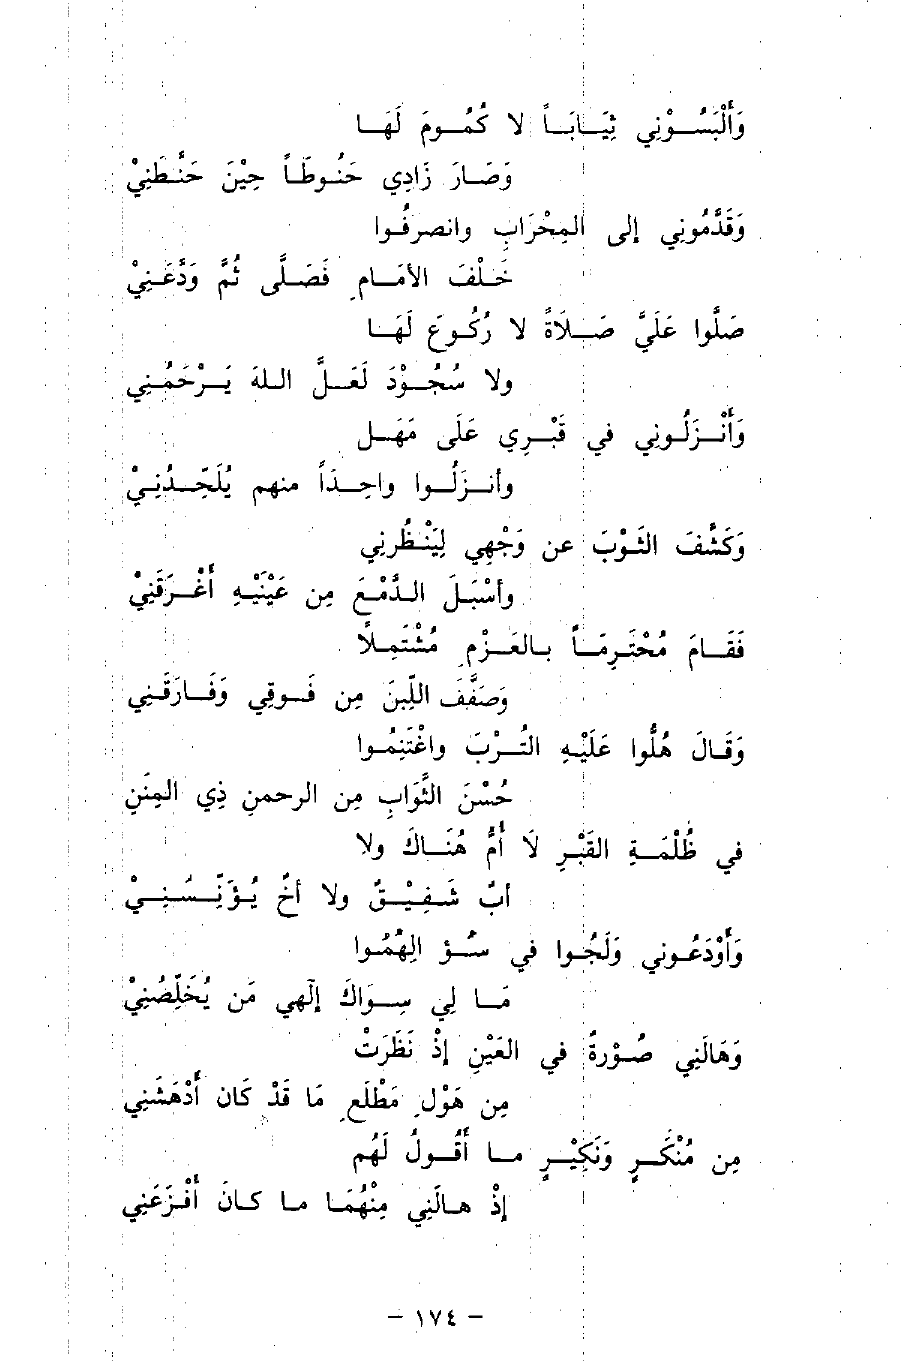 وَأَلْبَسُوْنِي ثِيَابَاً لا كُمُومَ لَهَا
وَصَارَ زَادِي حَنُوطَاً حِيْنَ حَنَّطَنِيْ
وَقَدَّمُونِي إلى المِحْرَابِ وانصرفُوا
خَلْفَ الأمَامِ فَصَلَّى ثُمَّ وَدَّعَنِيْ
صَلَّوا عَلَيَّ صَلَاةً لا رُكُوعَ لَهَا
ولا سُجُوْدَ لَعَلَّ اللهَ يَرْحَمُنِي
وَأَنْزَلُونِي في قَبْرِي عَلَى مَهَل
وأنزَلُوا واحِدَاً منهم يُلَحِّدُنِيْ
وَكَشَّفَ الثَّوْبَ عن وَجْهِي لِيَنْظُرنِي
وأسْبَلَ الدَّمْعَ مِن عَيْنَيْهِ أغْرَقَنِيْ
فَقَامَ مُحْتَرِمَاً بالعَزْمِ مُشْتَمِلاً
وَصَفَّفَ اللّبِنَ مِن فَوقِي وَفَارَقَنِي
وَقَالَ هُلُّوا عَلَيْهِ التُرْبَ واغْتَنِمُوا
حُسْنَ الثَّوَابِ مِن الرحمنِ ذِي المِنَنِ
في ظُلْمَةِ القَبْرِ لَا أُمٌّ هُنَاكَ ولا
أبٌ شَفِيْقٌ ولا أخٌ يُؤَنِّسُنِيْ
وَأَوْدَعُوني وَلَجُوا في سُؤ الِهُمُوا
مَا لِي سِوَاكَ إلَهي مَن يُخَلِّصُنِيْ
وَهَالَنِي صُوْرةٌ في العَيْنِ إذْ نَظَرَتْ
مِن هَوْلِ مَطْلَعِ مَا قَدْ كَان أَدْهَشَنِي
مِن مُنْكَرٍ وَنَكِيْرٍ ما أَقُولُ لَهُم
إذْ هالَنِي مِنْهُمَا ما كانَ أَفْزَعَنِي
- ١٧٤ -